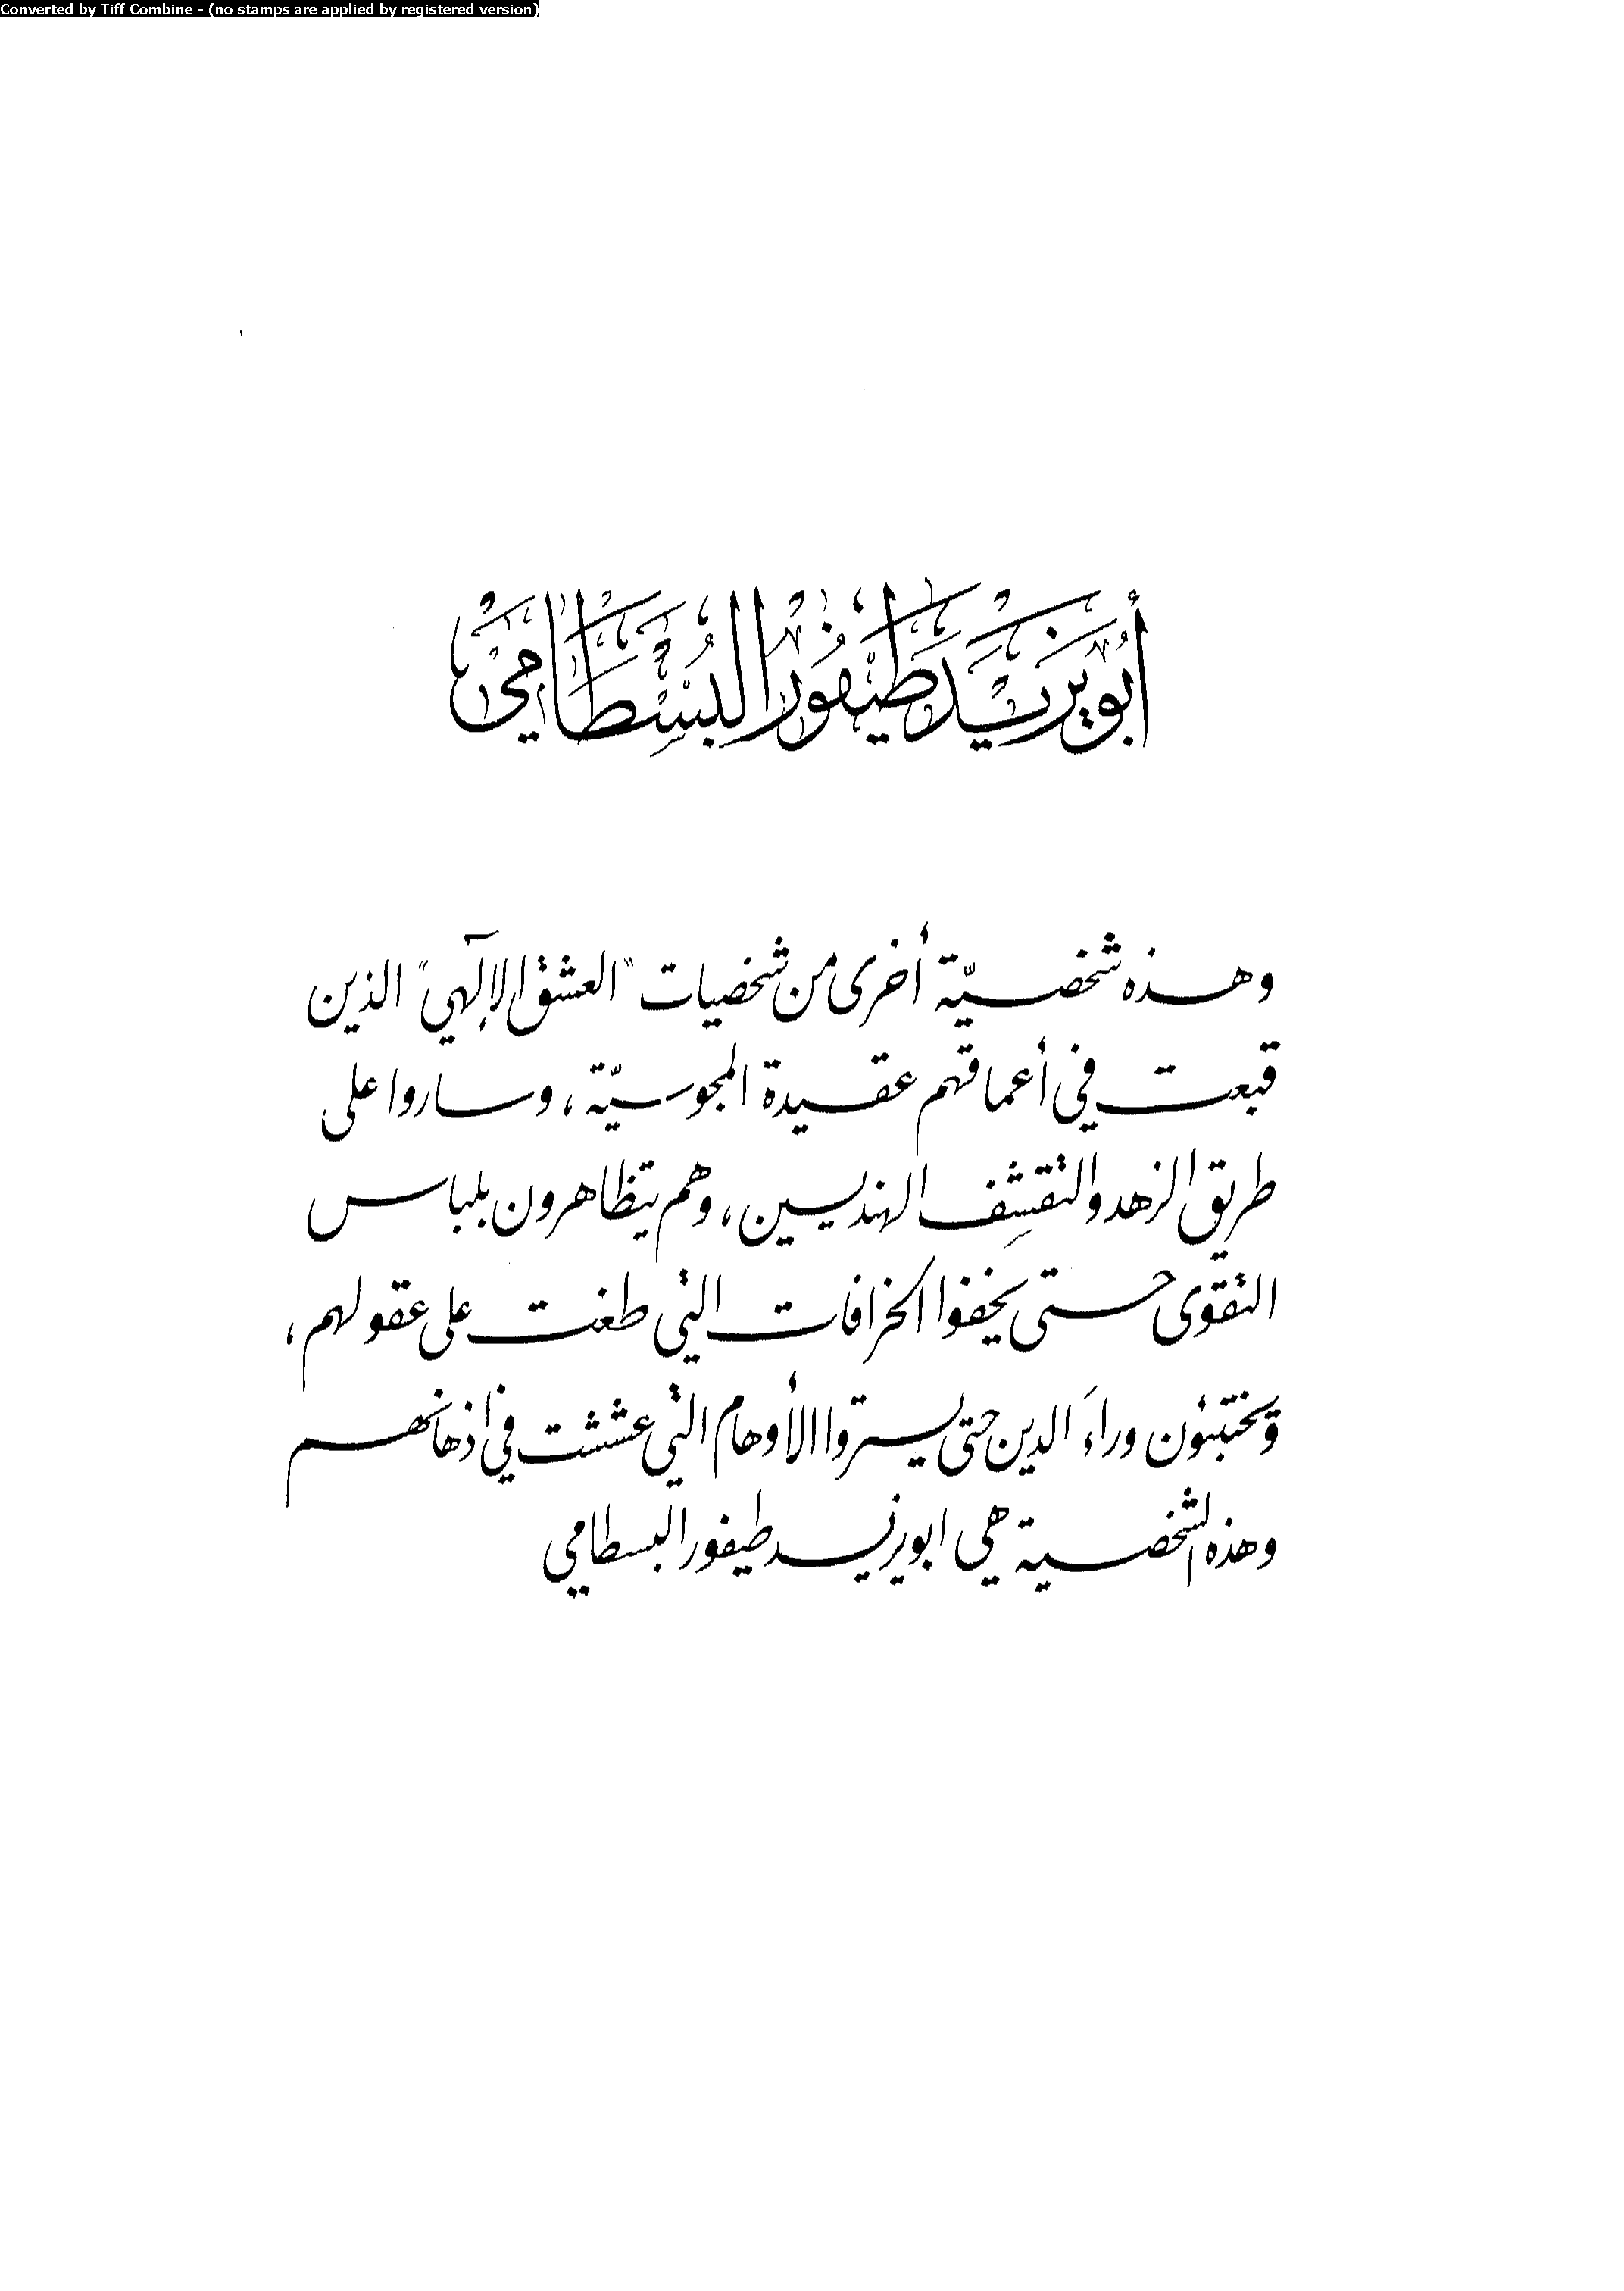 Converted by Tiff Combine - (no stamps are applied by registered version)
أبو يزيد طيفور البسطامي
وهذه شخصيّة أخرى من شخصيات "العشق الإلهي" الذين
قبعت في أعماقهم عقيدة المجوسيّة، وساروا على
طريق الزهد والتقشف الهنديسين، وهم يتظاهرون بلباس
التقوى حتى يخفوا الخرافات التي طغت على عقولهم،
ويختبئون وراءَ الدين حتى يستروا الأوهام التي عششت في اذهانهم
وهذه الشخصية هي ابو يزيد طيفور البسطامي